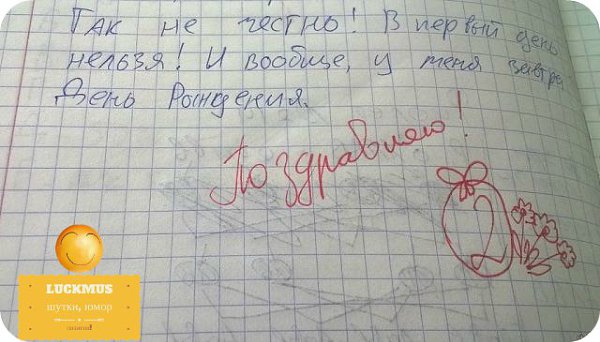 Так не честно! В первый день
нельзя! И вообще, у меня завтра
День Рождения.
Поздравляю!
2
LUCKMUS
шутки, юмор